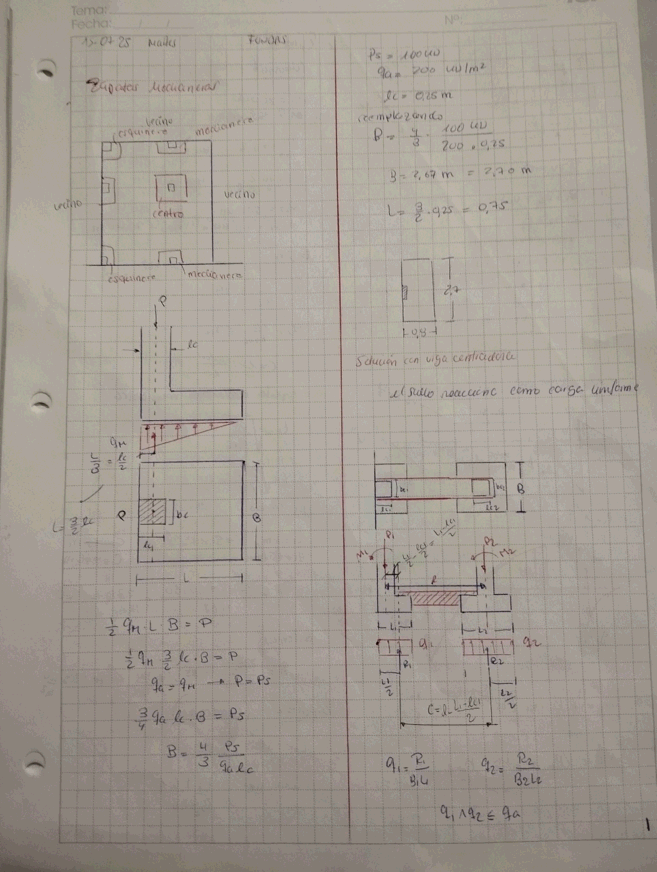 Tema:
Fecha:
Nº:
Zapatas Medianeras
vecino
esquinero medianero
vecino
centro
vecino
esquinero
medianero
P
lc
qM
L/3 = lc/2
L = 3/2 lc
P
bc
lc
B
L
1/2 qM · L B = P
1/2 qM 3/2 lc · B = P
qa = qM → P = Ps
3/4 qa lc · B = Ps
B = 4/3 Ps/qa lc
Ps = 100 kN
qa = 200 kN/m²
lc = 0,25 m
reemplazando
B = 4/3 · 100 kN / 200 · 0,25
B = 2,67 m = 2,70 m
L = 3/2 · 0,25 = 0,75
2,7
0,8
Solución con viga centradora
el suelo reacciona como carga uniforme
B
P1
P2
M1
M2
l
L1
L2
q1
q2
R1
R2
L1/2
L2/2
q1 = R1/B1L1
q2 = R2/B2L2
q1 ∧ q2 ≤ qa
1